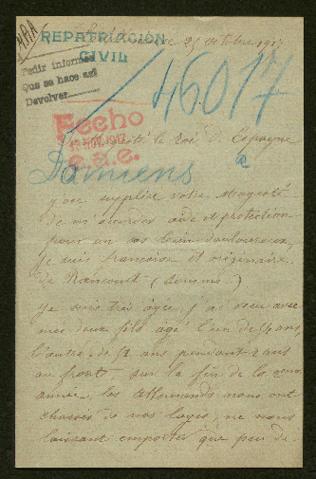 REPATRIACIÓN
CIVIL
25 octobre 1917
Pedir informes
que se hace así
Devolver
46017
Fecho
NOV. 1917
a.a.e.
le Roi d'Espagne
a
Damiens
supplier votre Majesté
de m'accorder aide et protection
pour un cas bien douloureux
Je suis française et originaire
de Rancourt (Somme)
Je suis très âgée, j'ai vécu avec
mes deux fils agé l'un de
l'autre de 52 ans pendant 2 ans
au front sur la fin de la 2eme
année, les Allemands nous ont
chassés de nos logis, ne nous
laissant emporter que peu de